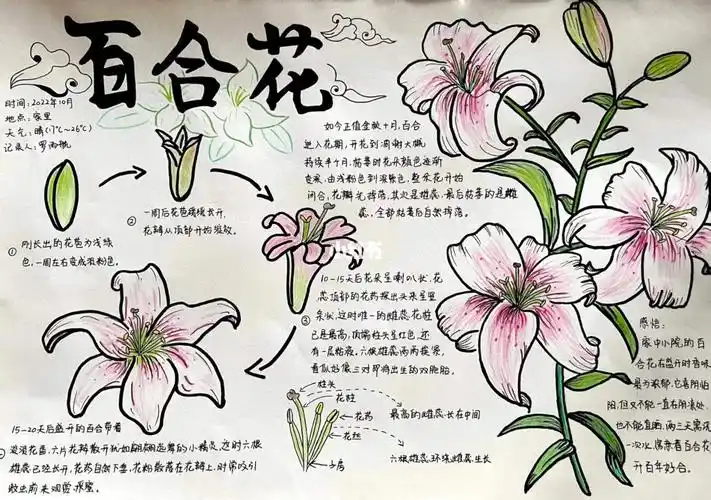 百合花
时间:2022年10月
地点:家里
天气:晴(17℃~26℃)
记录人:罗雨
① 刚长出的花苞为浅绿
色,一周左右变成浅粉色。
② 一周后花苞缓缓长开,
花瓣从顶部开始裂纹。
如今正值金秋十月,百合
进入花期,开花到凋谢大概
持续半个月,枯萎时花朵颜色逐渐
变深,由浅粉色到深紫色,整朵花开始
闭合,花瓣先掉落,其次是雄蕊,最后枯萎的是雌
蕊,全部枯萎后自然掉落。
10-15天后花朵呈喇叭状,花
蕊顶部的花药探出头来呈
条状,这时唯一的雌蕊花柱
③ 已是最高,顶端柱头呈红色,还
有一层粘液,六根雄蕊两两挨紧,
看似好像三对即将出生的双胞胎
15-20天后盛开的百合带着
淡淡花香,六片花瓣散开犹如翩翩起舞的小精灵,这时六根
雄蕊已经长开,花药自然下垂,花粉散落在花瓣上,时常吸引
昆虫前来观赏采蜜。
柱头
花柱
花药
花丝
子房
最高的雌蕊长在中间
六根雄蕊环绕雌蕊生长
感悟:
家中小院的百
合花在盛开时香味
最为浓郁,它喜阴怕
阳,但又不能一直在阴凉处,
也不能直晒,两三天需浇
一次水,愿亲看百合花
开百年好合。